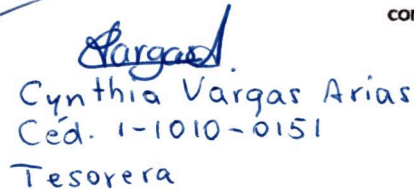 Cynthia Vargas Arias
Céd. 1-1010-0151
Tesorera